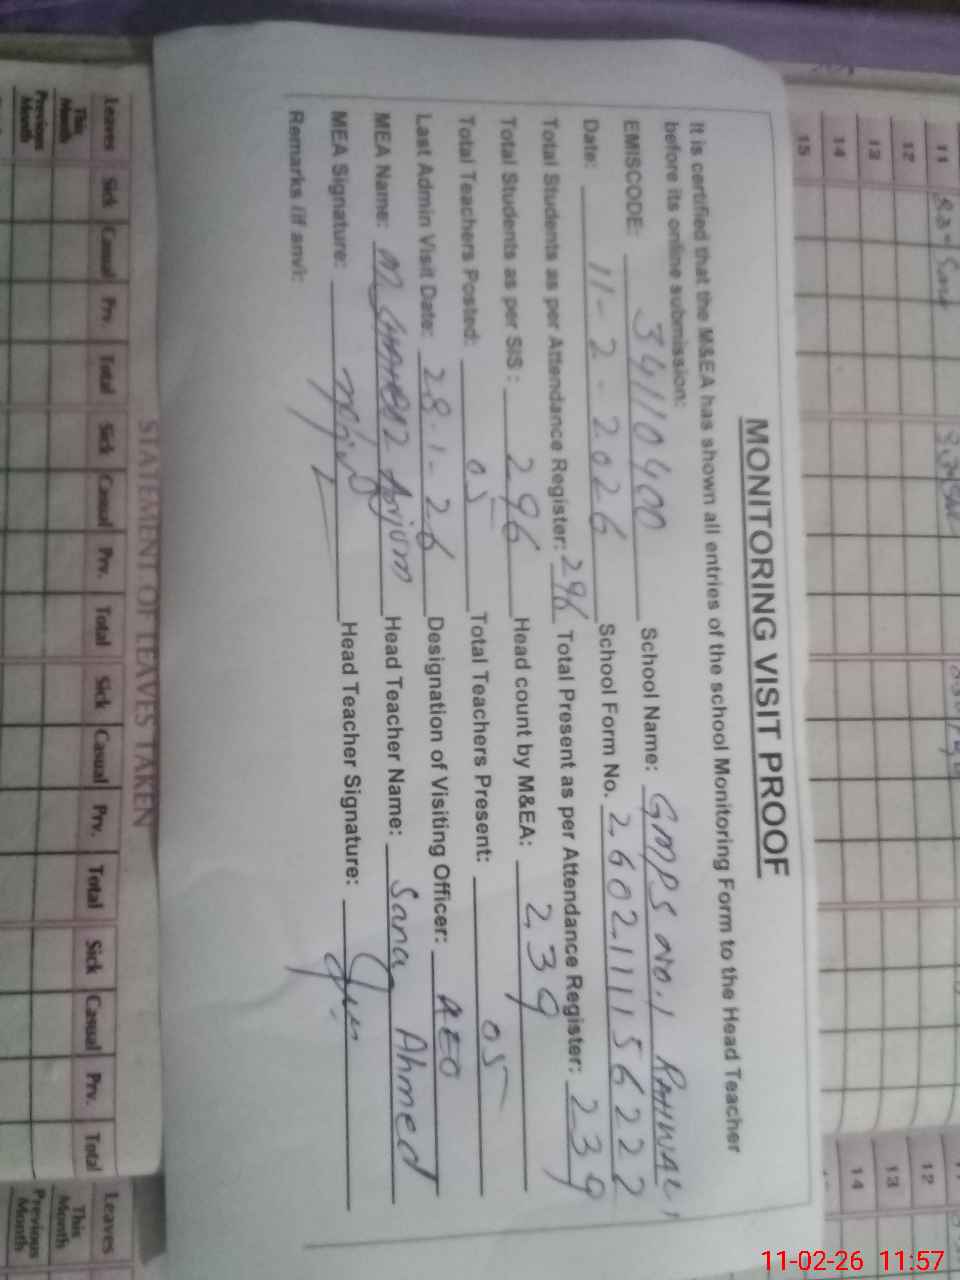 MONITORING VISIT PROOF
It is certified that the M&EA has shown all entries of the school Monitoring Form to the Head Teacher
before its online submission:
EMISCODE: 34110400 School Name: GMPS No.1 RAHWALI
Date: 11-2-2026 School Form No. 260211156222
Total Students as per Attendance Register: 296 Total Present as per Attendance Register: 239
Total Students as per SIS: 296 Head count by M&EA: 239
Total Teachers Posted: 05 Total Teachers Present: 05
Last Admin Visit Date: 28-1-26 Designation of Visiting Officer: AEO
MEA Name: M. Anjum Head Teacher Name: Sana Ahmed
MEA Signature: Head Teacher Signature:
Remarks (if any):
11
12
13
14
15
12
13
14
STATEMENT OF LEAVES TAKEN
Leaves Sick Casual Prv. Total Sick Casual Prv. Total Sick Casual Prv. Total Sick Casual Prv. Total Leaves
This Month This Month
Previous Month Previous Month
11-02-26 11:57